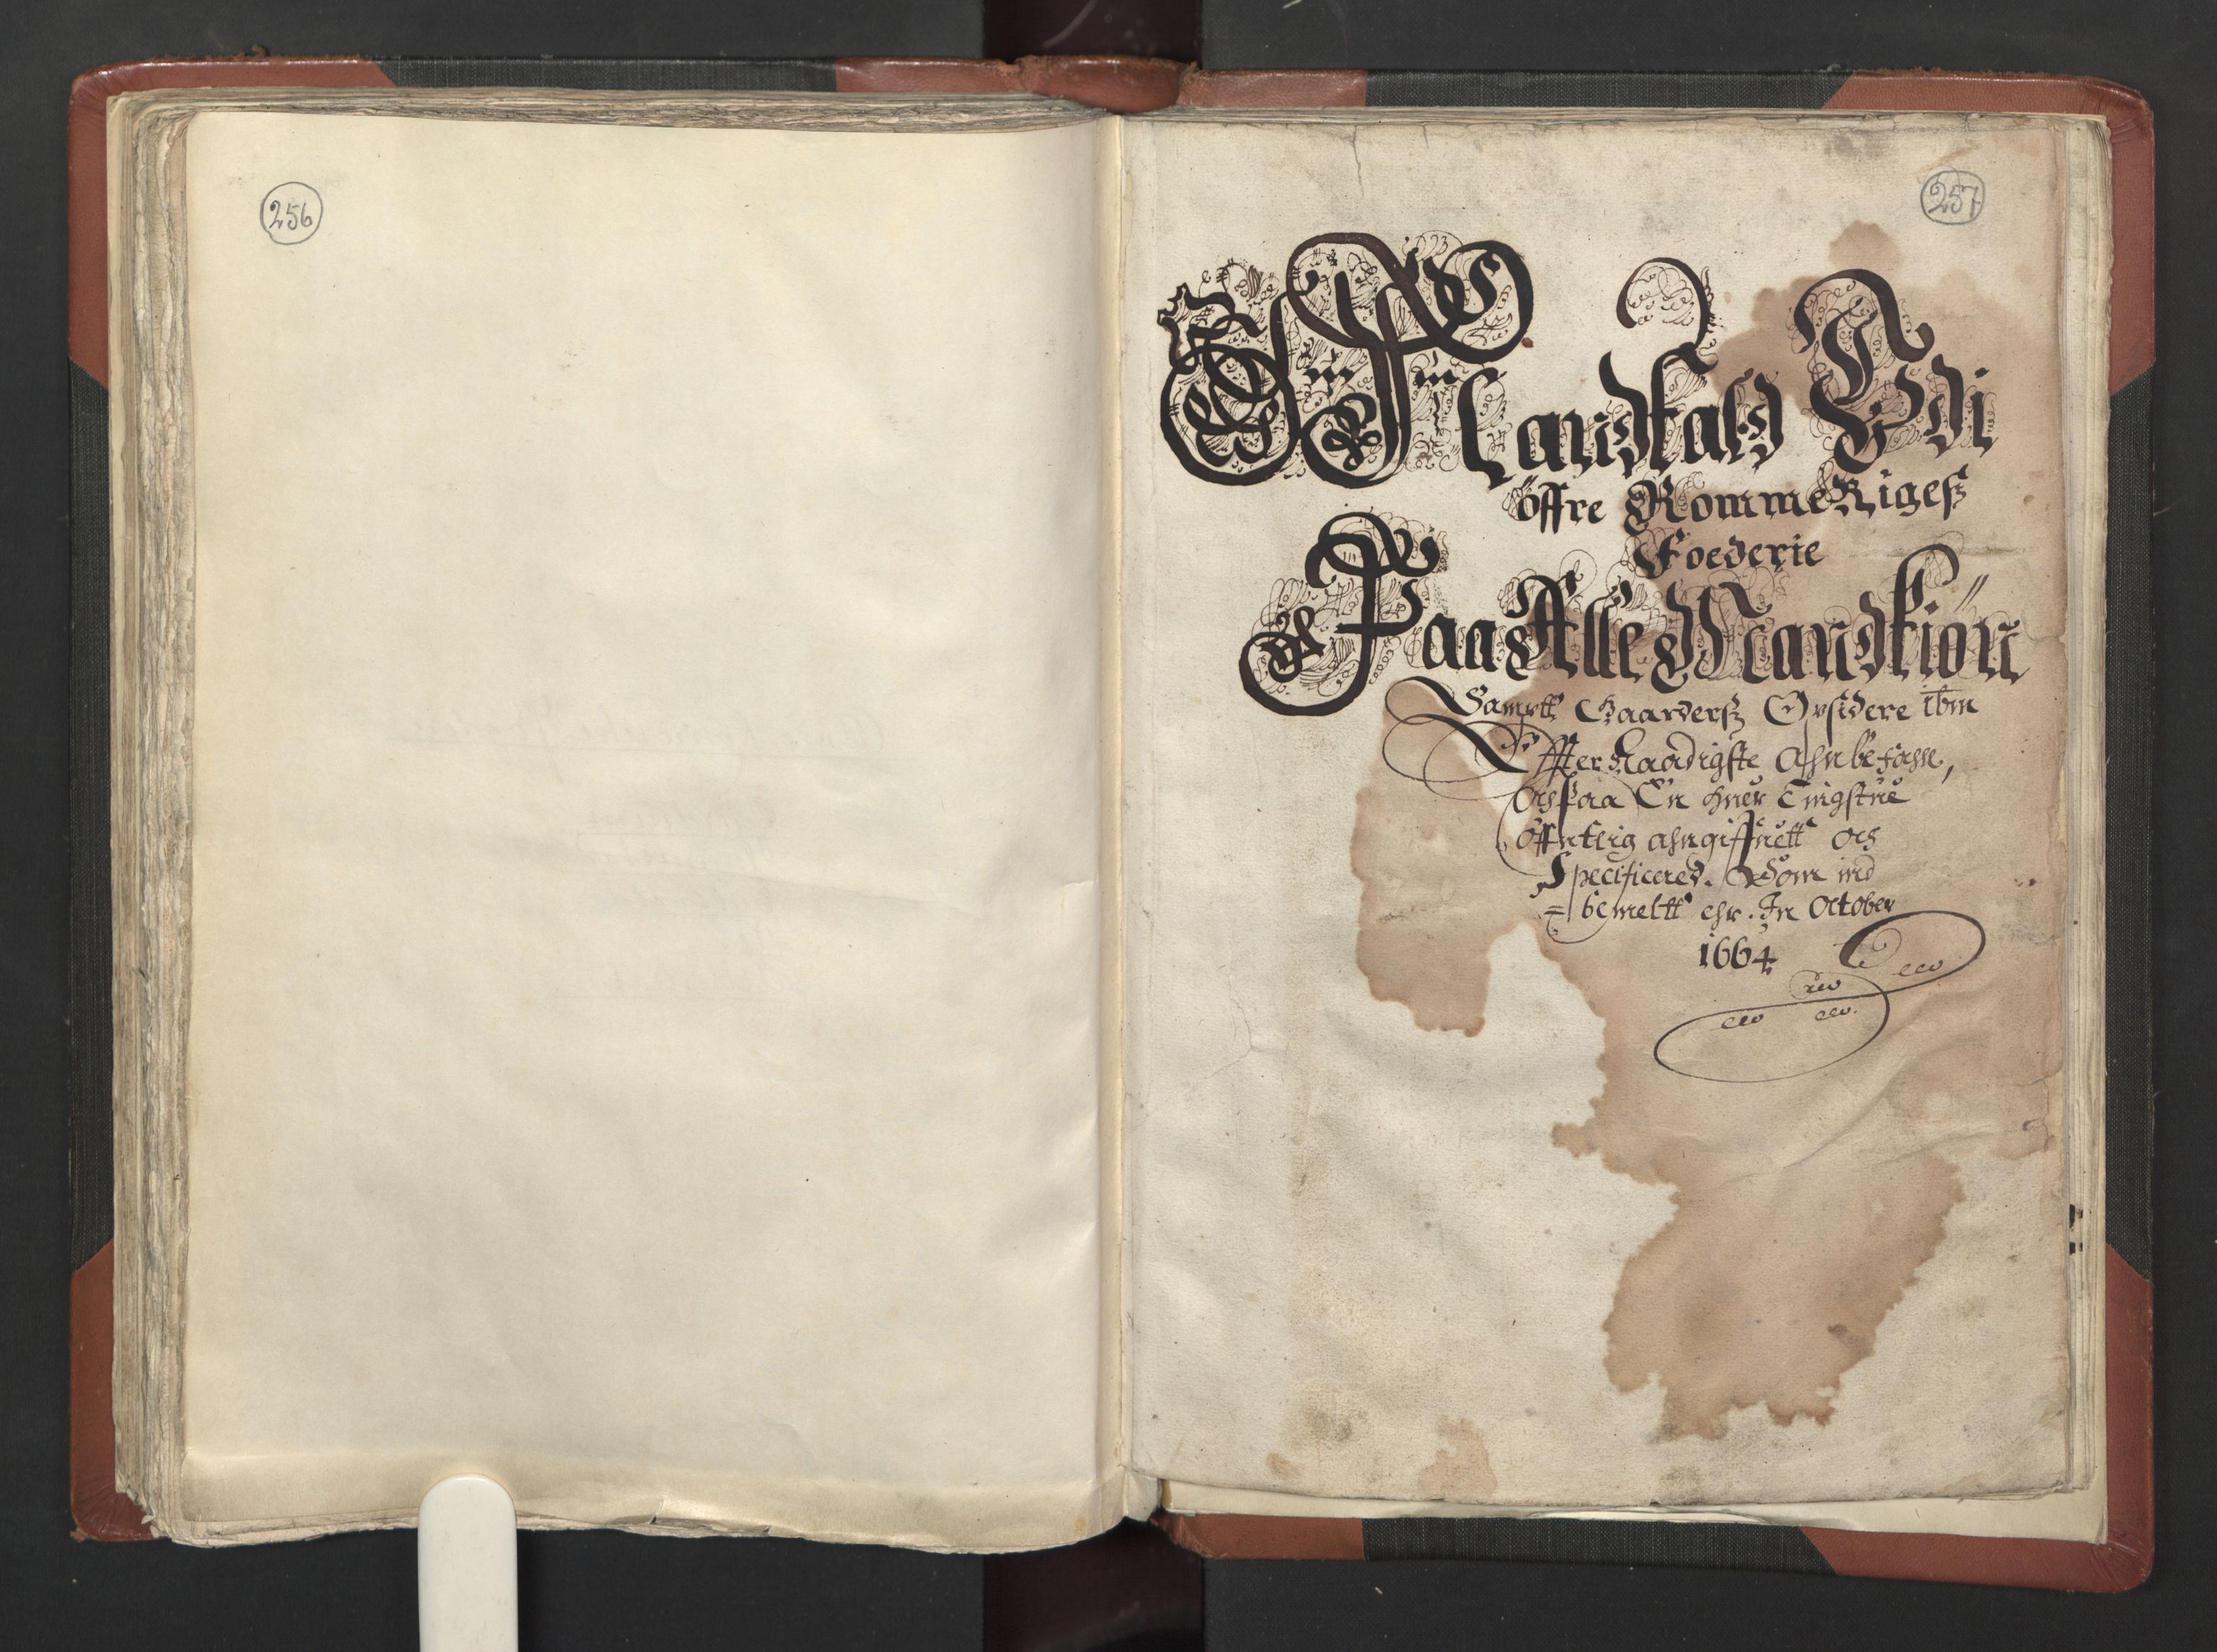 256
257
Mandtals Udi
öffre RommeRigesß
Foederie
Paa Alle Mandkiön
Samptt Gaardersß Opsidere ibm
Effter Naadigste Ahnbefahn,
och paa En huer Tingstue
öffentlig ahngiffuett och
Specificered. Som ind
= bemeltt ehr. In October
1664